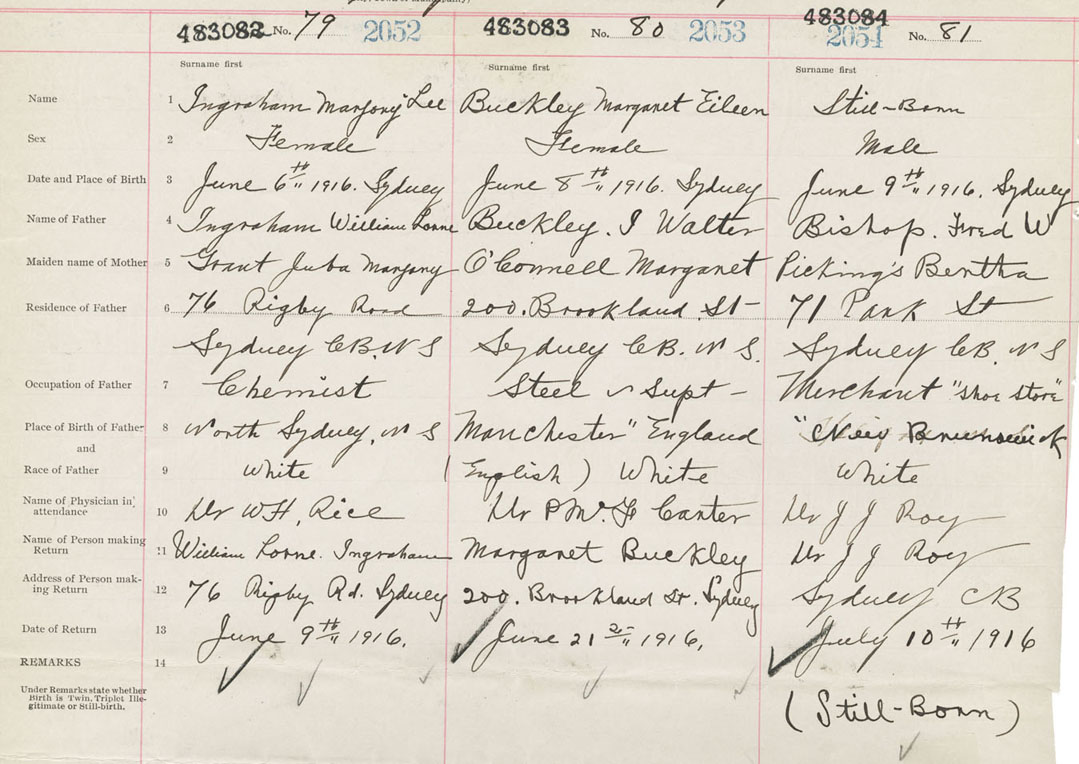 483082 No. 79 2052 483083 No. 80 2053 483084 2054 No. 81
Surname first Surname first Surname first
Name 1 Ingraham Marjory Lee Buckley Margaret Eileen Still-Born
Sex 2 Female Female Male
Date and Place of Birth 3 June 6th 1916. Sydney June 8th 1916. Sydney June 9th 1916. Sydney
Name of Father 4 Ingraham William Lorne Buckley. J Walter Bishop. Fred W
Maiden name of Mother 5 Grant Juba Marjory O'Connell Margaret Picking's Bertha
Residence of Father 6 76 Rigby Road 200. Brookland St 71 Park St
Sydney CB. N S Sydney CB. N S. Sydney CB. N S
Occupation of Father 7 Chemist Steel Supt - Merchant "Shoe Store"
Place of Birth of Father 8 North Sydney, N S Manchester" England "New Brunswick
and
Race of Father 9 White (English) White White
Name of Physician in attendance 10 Dr W H. Rice Dr P Mc F Carter Dr J J Roy
Name of Person making Return 11 William Lorne. Ingraham Margaret Buckley Dr J J Roy
Address of Person making Return 12 76 Rigby Rd. Sydney 200. Brookland St. Sydney Sydney CB
Date of Return 13 June 9th 1916. June 21st 1916. July 10th 1916
REMARKS 14
Under Remarks state whether
Birth is Twin, Triplet Ille-
gitimate or Still-birth.
(Still-Born)